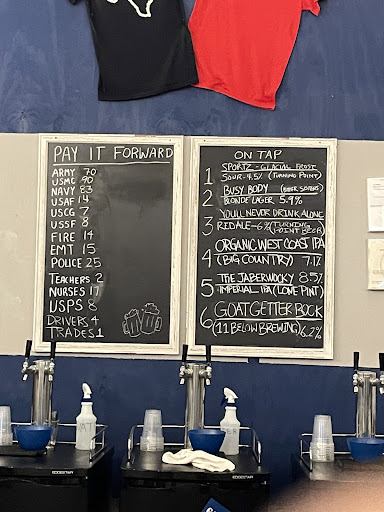 PAY IT FORWARD
ARMY 70
USMC 90
NAVY 83
USAF 14
USCG 7
USSF 8
FIRE 14
EMT 15
POLICE 25
TEACHERS 2
NURSES 17
USPS 8
DRIVERS 4
TRADES 1
ON TAP
1 SPORTZ - GLACIAL FROST
SOUR - 4.5% (TURNING POINT)
2 BUSY BODY
BLONDE LAGER 5.9%
3 YOU'LL NEVER DRINK ALONE
RED ALE - 6% (TURNING POINT BEER)
4 ORGANIC WEST COAST IPA
(BIG COUNTRY) 7.1%
5 THE JABERWOCKY 8.5%
IMPERIAL IPA (LOVE PINT)
6 GOATGETTER BOCK
(11 BELOW BREWING) 6.2%